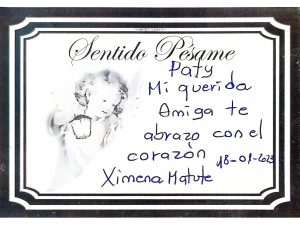 Sentido Pésame
Paty
Mi querida
Amiga te
abrazo con el
corazón
18-01-2023
Ximena Matute